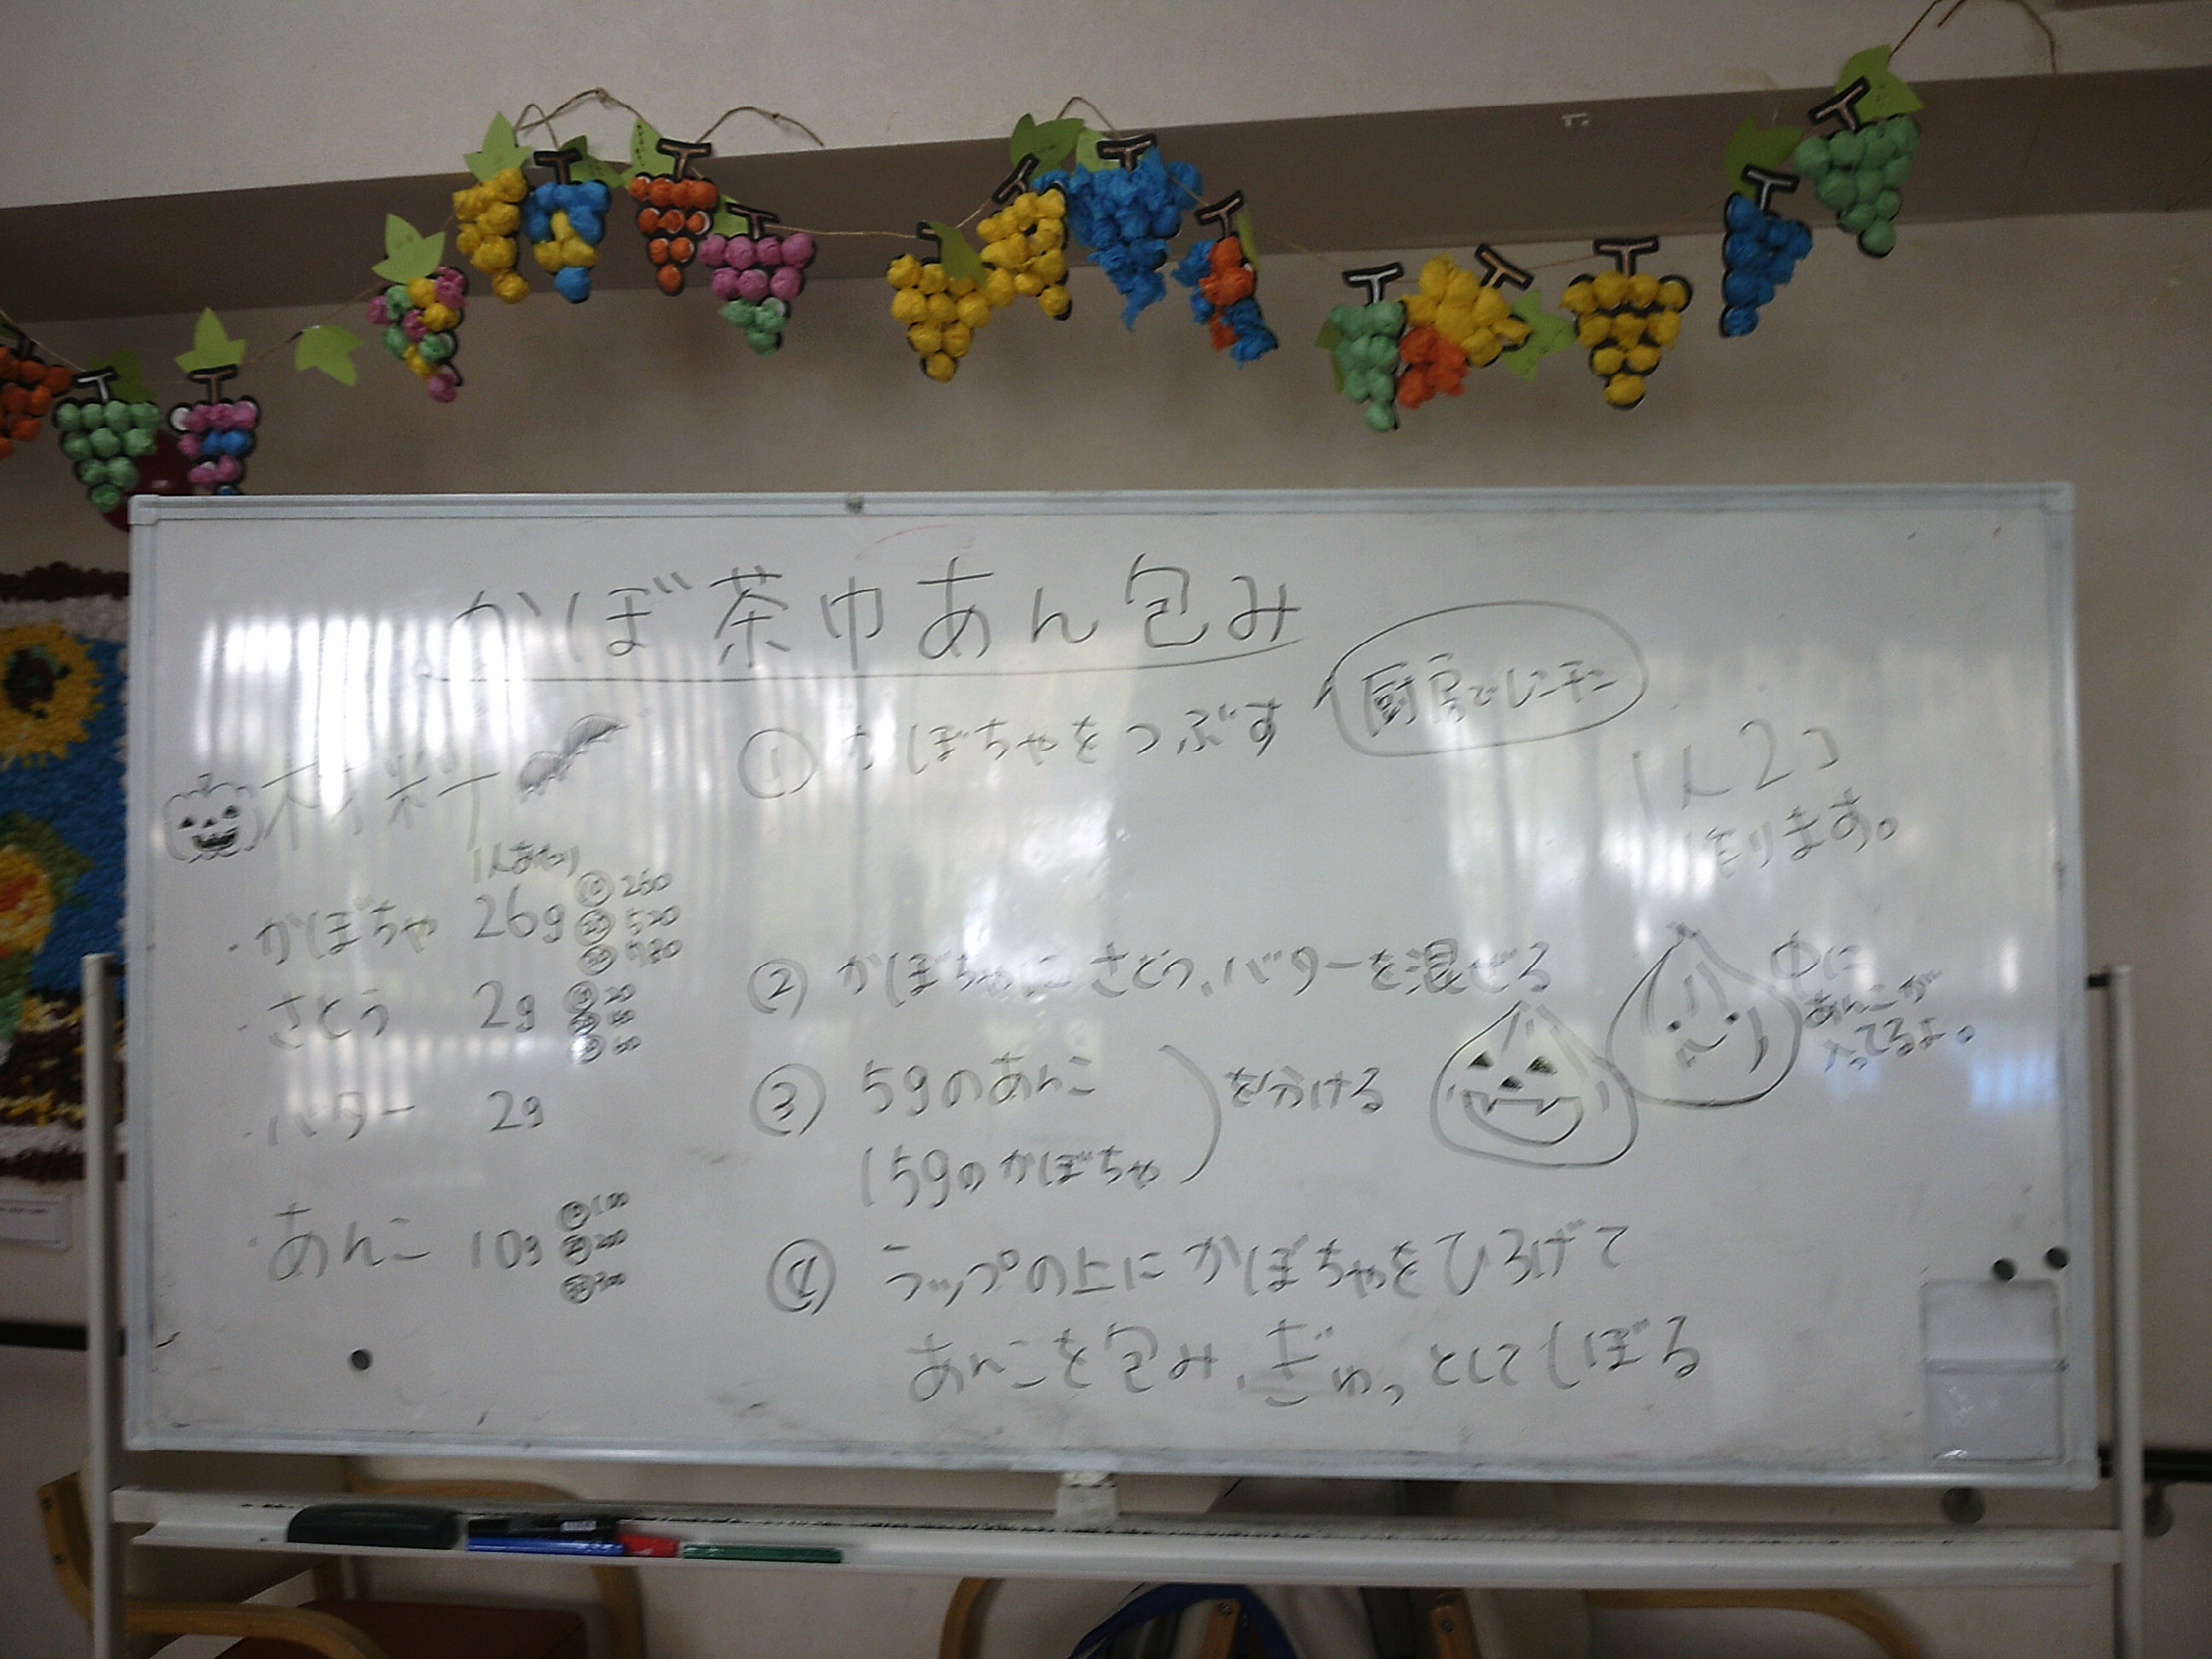 かぼ茶巾あん包み
材料
1人あたり
・かぼちゃ 26g ⑩260
⑳520
㉚780
・さとう 2g ⑩20
⑳40
㉚60
・バター 2g
・あんこ 10g ⑩100
⑳200
㉚300
①かぼちゃをつぶす
厨房でレンチン
1人2コ
作ります。
②かぼちゃにさとう、バターを混ぜる
③5gのあんこ
15gのかぼちゃ
を分ける
中に
あんこが
入ってるよ。
④ラップの上にかぼちゃをひろげて
あんこを包み、ぎゅっとしてしぼる